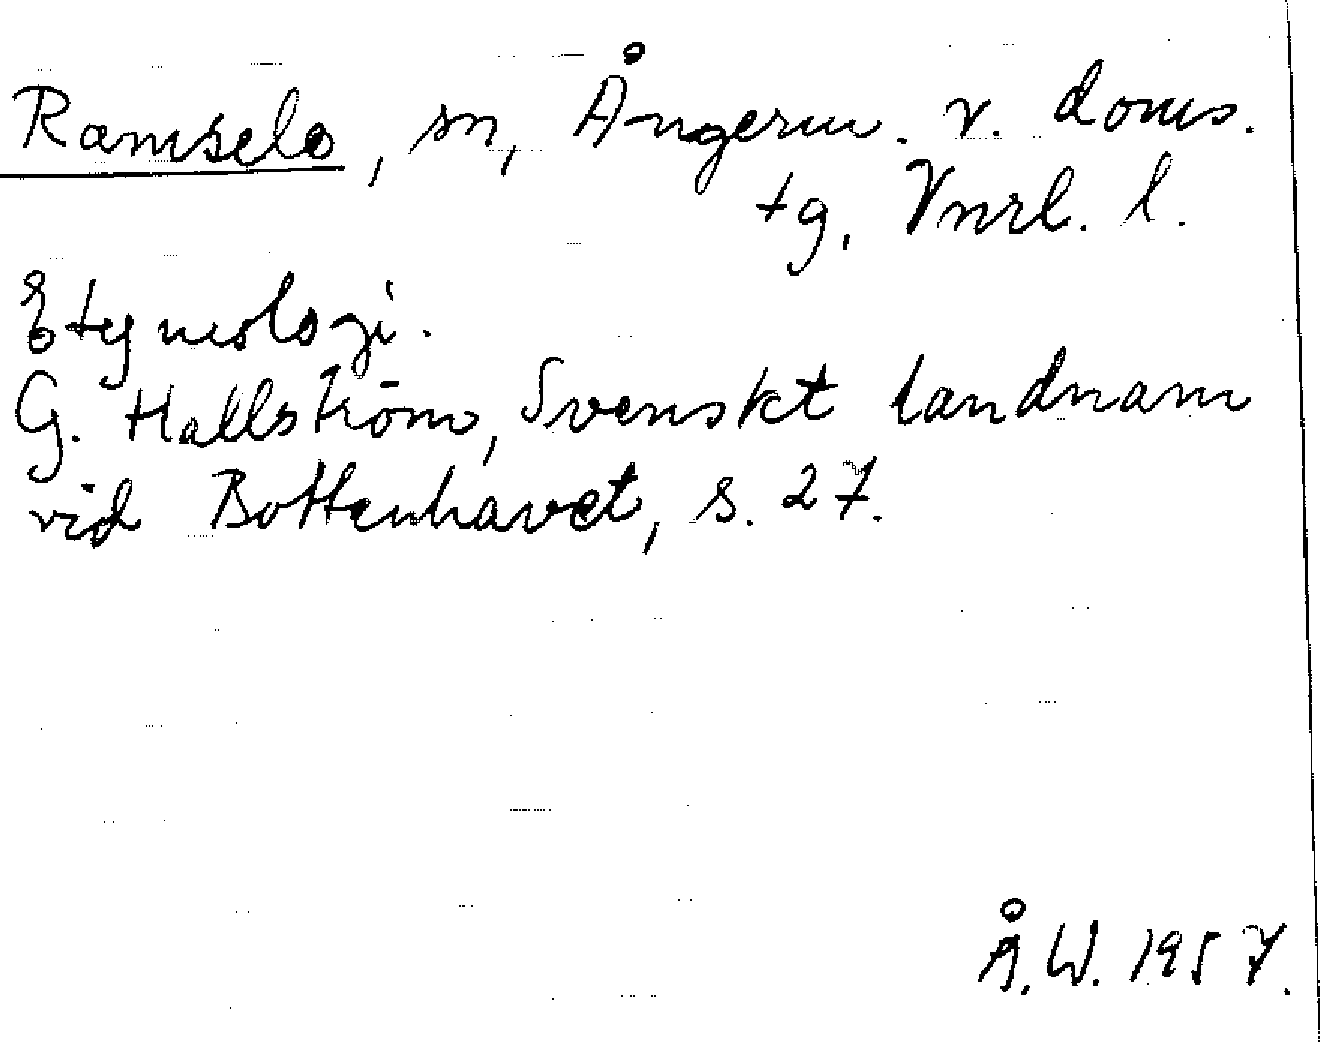 Ramsele, sn, Ångerm. v. doms.
tg, Vnrl. l.
Etymologi.
G. Hallström, Svenskt landnam
vid Bottenhavet, s. 27.
Å.W. 1957.